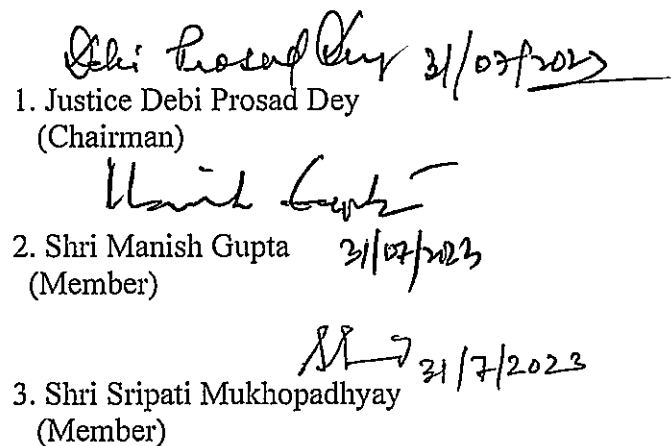 Debi Prosad Dey 31/07/2023
1. Justice Debi Prosad Dey
(Chairman)
Manish Gupta
2. Shri Manish Gupta 31/07/2023
(Member)
31/7/2023
3. Shri Sripati Mukhopadhyay
(Member)